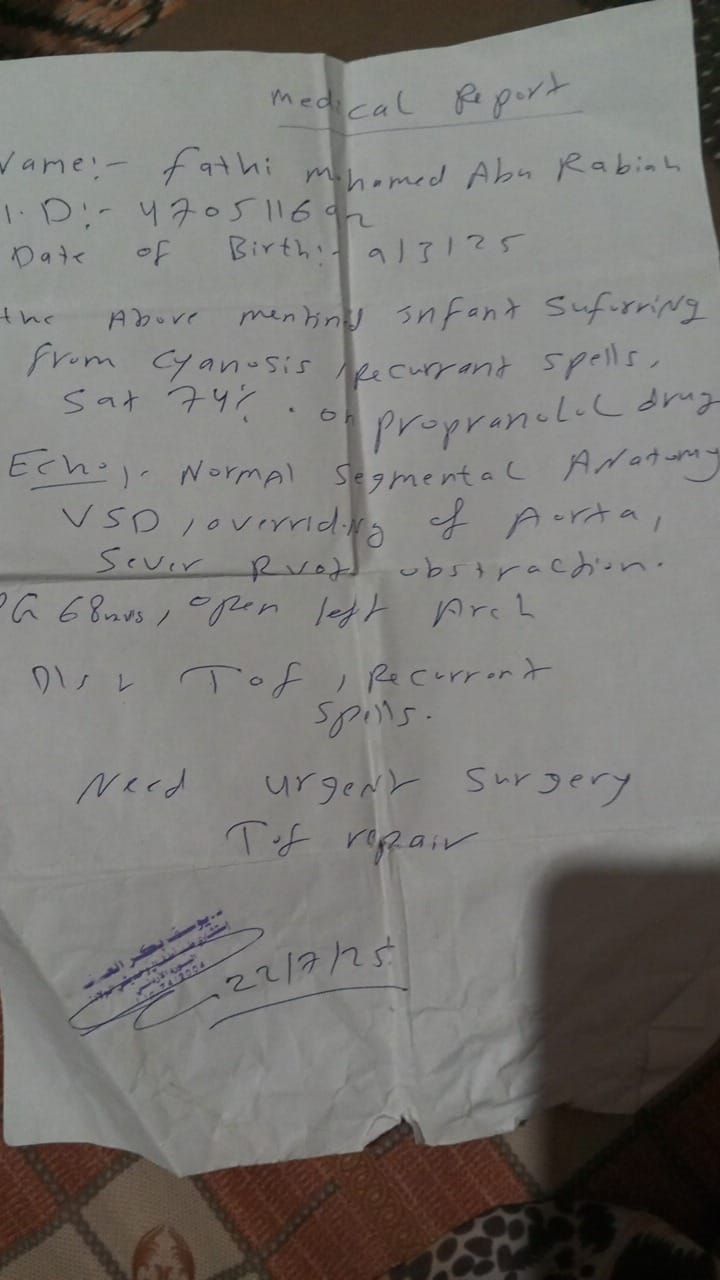 Medical Report
Name:- Fathi Mohamed Abu Rabiah
I.D:- 470511692
Date of Birth:- 9/3/25
the Above mentind infant Sufurring
from cyanosis, recurrant spells,
Sat 74%. on propranolol drug
Echo:- Normal Segmental Anatomy
VSD, overriding of Aorta,
Sever RVOT obstraction.
PG 68, open left Arch
TOF, Recurrent
spills.
Need urgent surgery
Tof repair
22/7/25